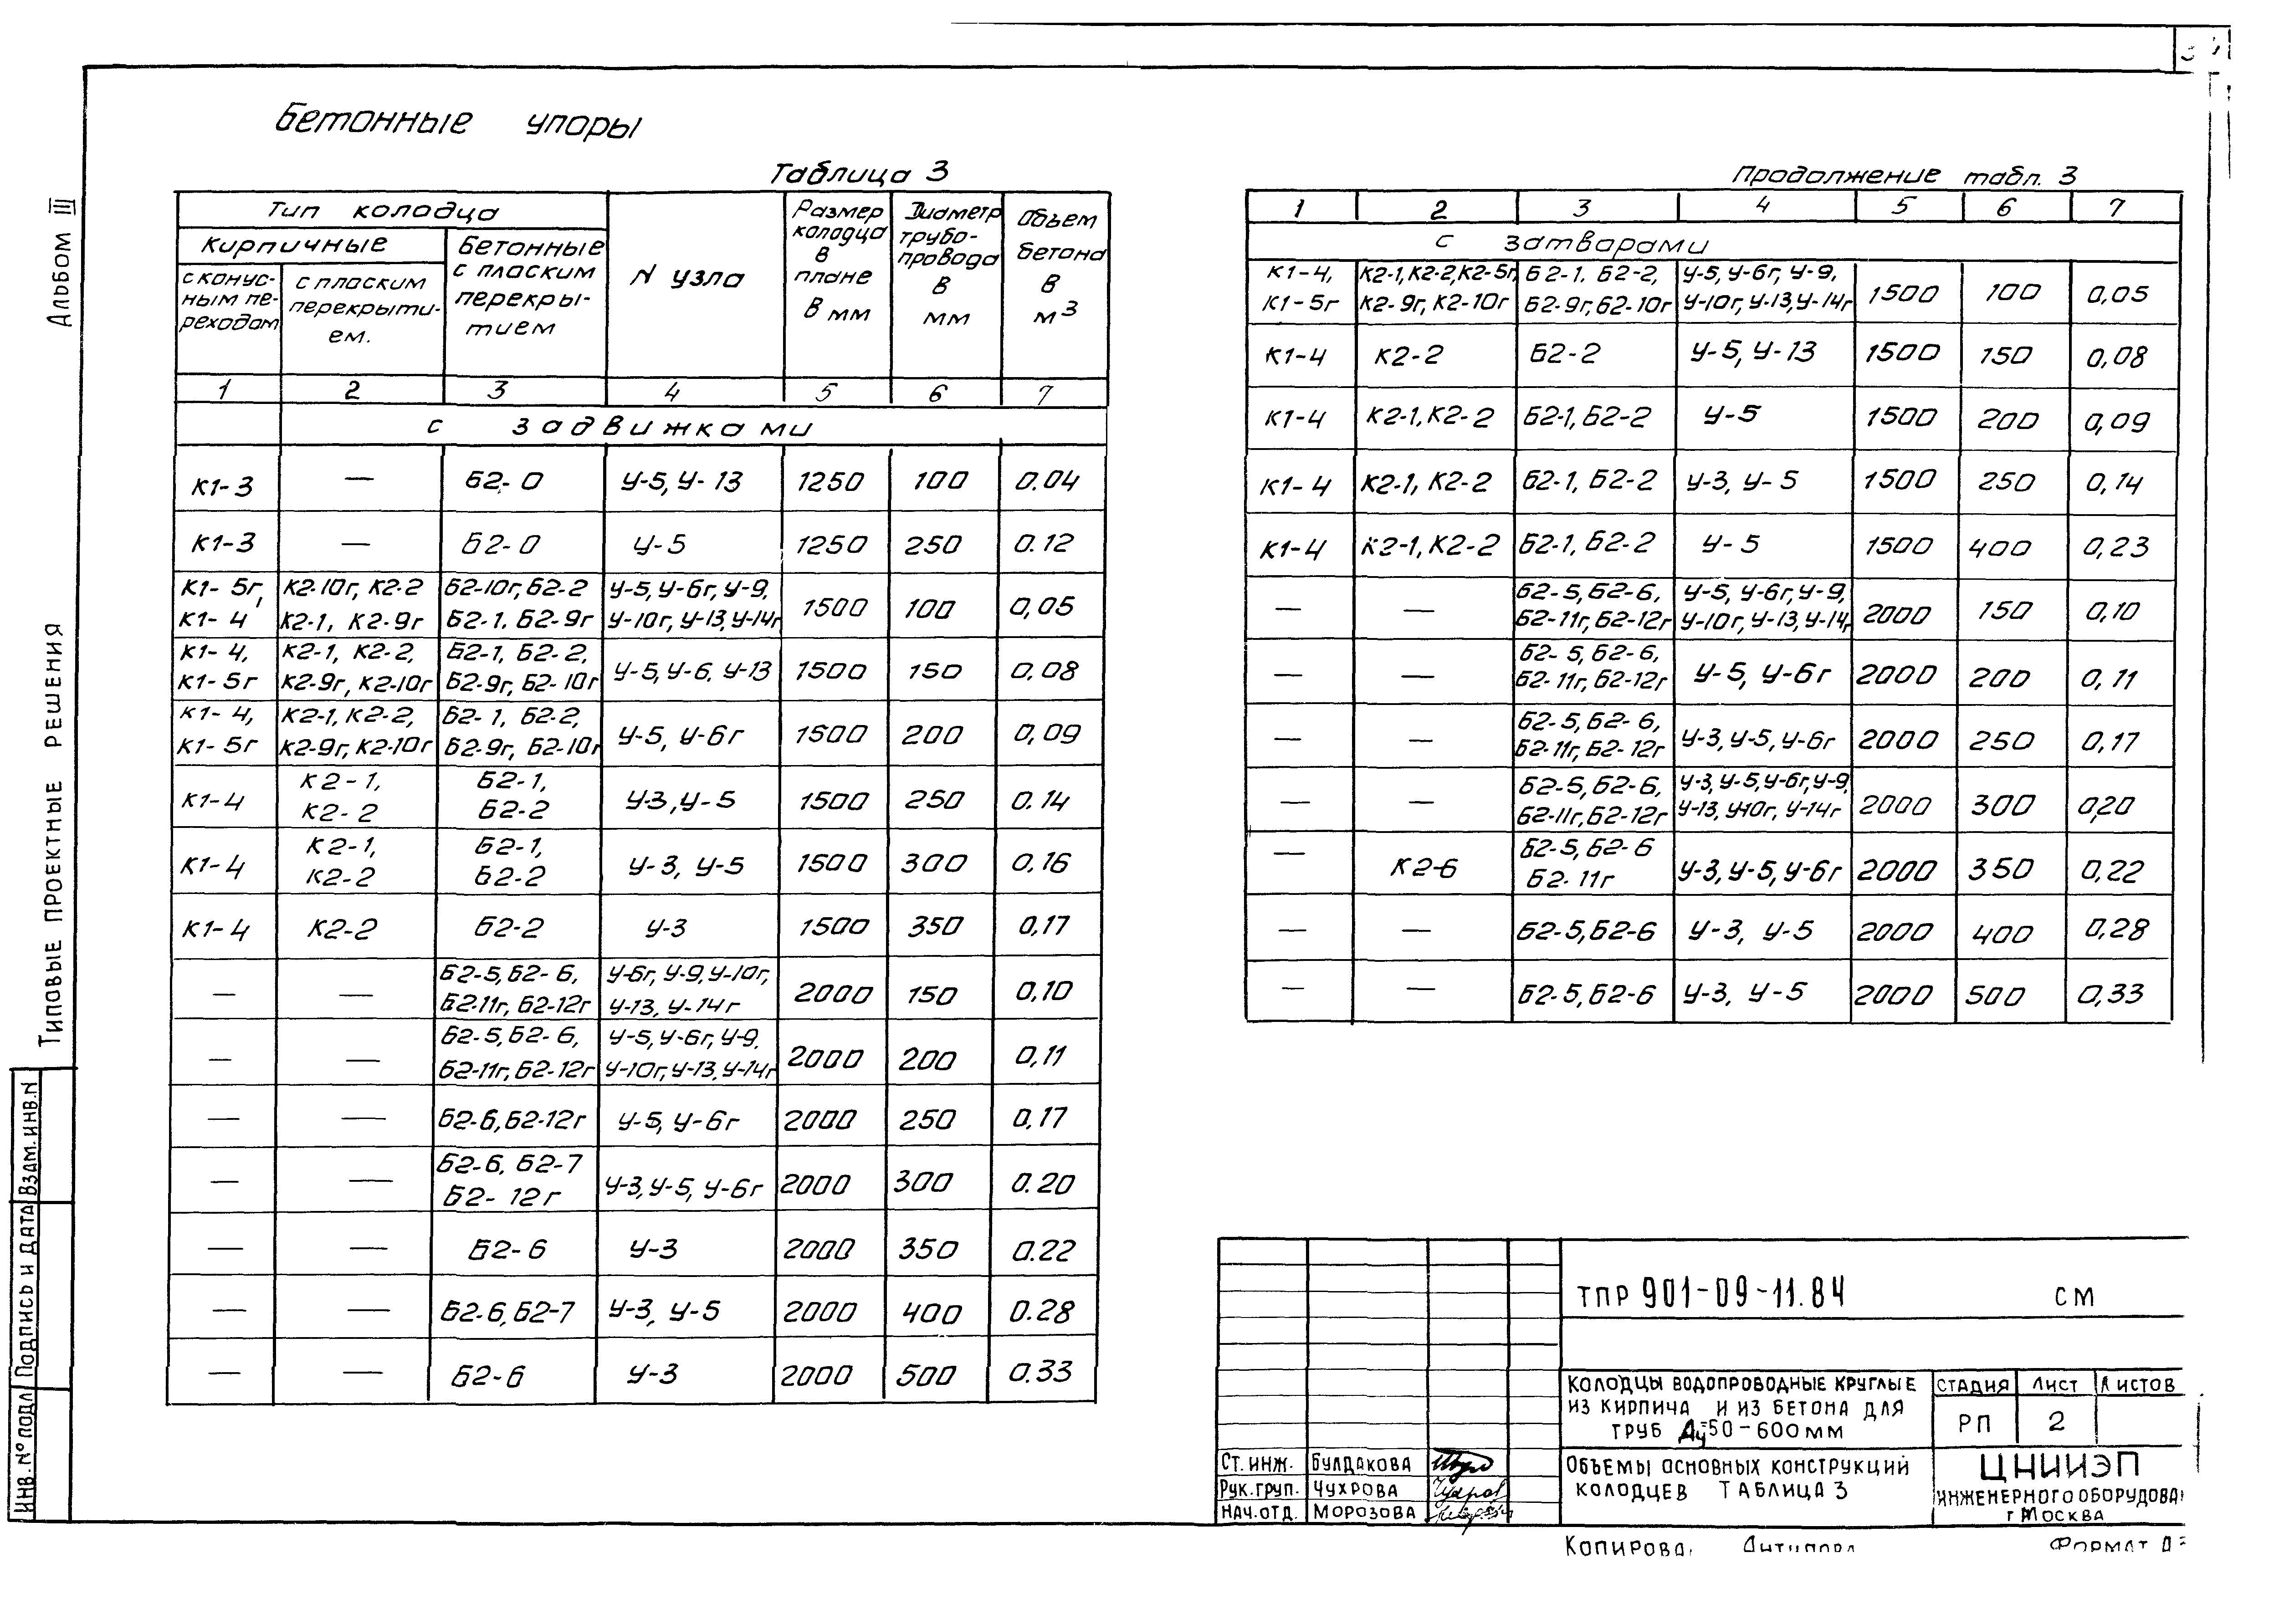 Альбом III
Типовые проектные решения
Взам. инв. N
Подпись и дата
Инв. № подл
Бетонные упоры
Таблица 3
Тип колодца | N узла | Размер колодца в плане в мм | Диаметр трубо-провода в мм | Объем бетона в м3
Кирпичные | Бетонные с пласким перекры-тием
с конус-ным пе-реходом | с пласким перекрыти-ем.
1 2 3 4 5 6 7
с задвижками
К1-3 — Б2-0 У-5, У-13 1250 100 0.04
К1-3 — Б2-0 У-5 1250 250 0.12
К1-5г, К1-4 К2-10г, К2-2 К2-1, К2-9г Б2-10г, Б2-2 Б2-1, Б2-9г У-5, У-6г, У-9, У-10г, У-13, У-14г 1500 100 0,05
К1-4, К1-5г К2-1, К2-2, К2-9г, К2-10г Б2-1, Б2-2, Б2-9г, Б2-10г У-5, У-6, У-13 1500 150 0,08
К1-4, К1-5г К2-1, К2-2, К2-9г, К2-10г Б2-1, Б2-2, Б2-9г, Б2-10г У-5, У-6г 1500 200 0,09
К1-4 К2-1, К2-2 Б2-1, Б2-2 У-3, У-5 1500 250 0.14
К1-4 К2-1, К2-2 Б2-1, Б2-2 У-3, У-5 1500 300 0,16
К1-4 К2-2 Б2-2 У-3 1500 350 0,17
— — Б2-5, Б2-6, Б2-11г, Б2-12г У-6г, У-9, У-10г, У-13, У-14г 2000 150 0,10
— — Б2-5, Б2-6, Б2-11г, Б2-12г У-5, У-6г, У-9, У-10г, У-13, У-14г 2000 200 0,11
— — Б2-6, Б2-12г У-5, У-6г 2000 250 0,17
— — Б2-6, Б2-7 Б2-12г У-3, У-5, У-6г 2000 300 0.20
— — Б2-6 У-3 2000 350 0.22
— — Б2-6, Б2-7 У-3, У-5 2000 400 0.28
— — Б2-6 У-3 2000 500 0.33
Продолжение табл. 3
1 2 3 4 5 6 7
с затворами
К1-4, К1-5г К2-1, К2-2, К2-5г, К2-9г, К2-10г Б2-1, Б2-2, Б2-9г, Б2-10г У-5, У-6г, У-9, У-10г, У-13, У-14г 1500 100 0,05
К1-4 К2-2 Б2-2 У-5, У-13 1500 150 0,08
К1-4 К2-1, К2-2 Б2-1, Б2-2 У-5 1500 200 0,09
К1-4 К2-1, К2-2 Б2-1, Б2-2 У-3, У-5 1500 250 0,14
К1-4 К2-1, К2-2 Б2-1, Б2-2 У-5 1500 400 0,23
— — Б2-5, Б2-6, Б2-11г, Б2-12г У-5, У-6г, У-9, У-10г, У-13, У-14г 2000 150 0,10
— — Б2-5, Б2-6, Б2-11г, Б2-12г У-5, У-6г 2000 200 0,11
— — Б2-5, Б2-6, Б2-11г, Б2-12г У-3, У-5, У-6г 2000 250 0,17
— — Б2-5, Б2-6, Б2-11г, Б2-12г У-3, У-5, У-6г, У-9, У-13, У-10г, У-14г 2000 300 0,20
— К2-6 Б2-5, Б2-6 Б2-11г У-3, У-5, У-6г 2000 350 0,22
— — Б2-5, Б2-6 У-3, У-5 2000 400 0,28
— — Б2-5, Б2-6 У-3, У-5 2000 500 0,33
ТПР 901-09-11.84 СМ
Колодцы водопроводные круглые
из кирпича и из бетона для
труб Ду=50-600мм
Стадия Лист Листов
РП 2
Объемы основных конструкций
колодцев Таблица 3
ЦНИИЭП
инженерного оборудова
г. Москва
Ст. инж. Булдакова
Рук. груп. Чухрова
Нач. отд. Морозова
Копирова
Формат А3